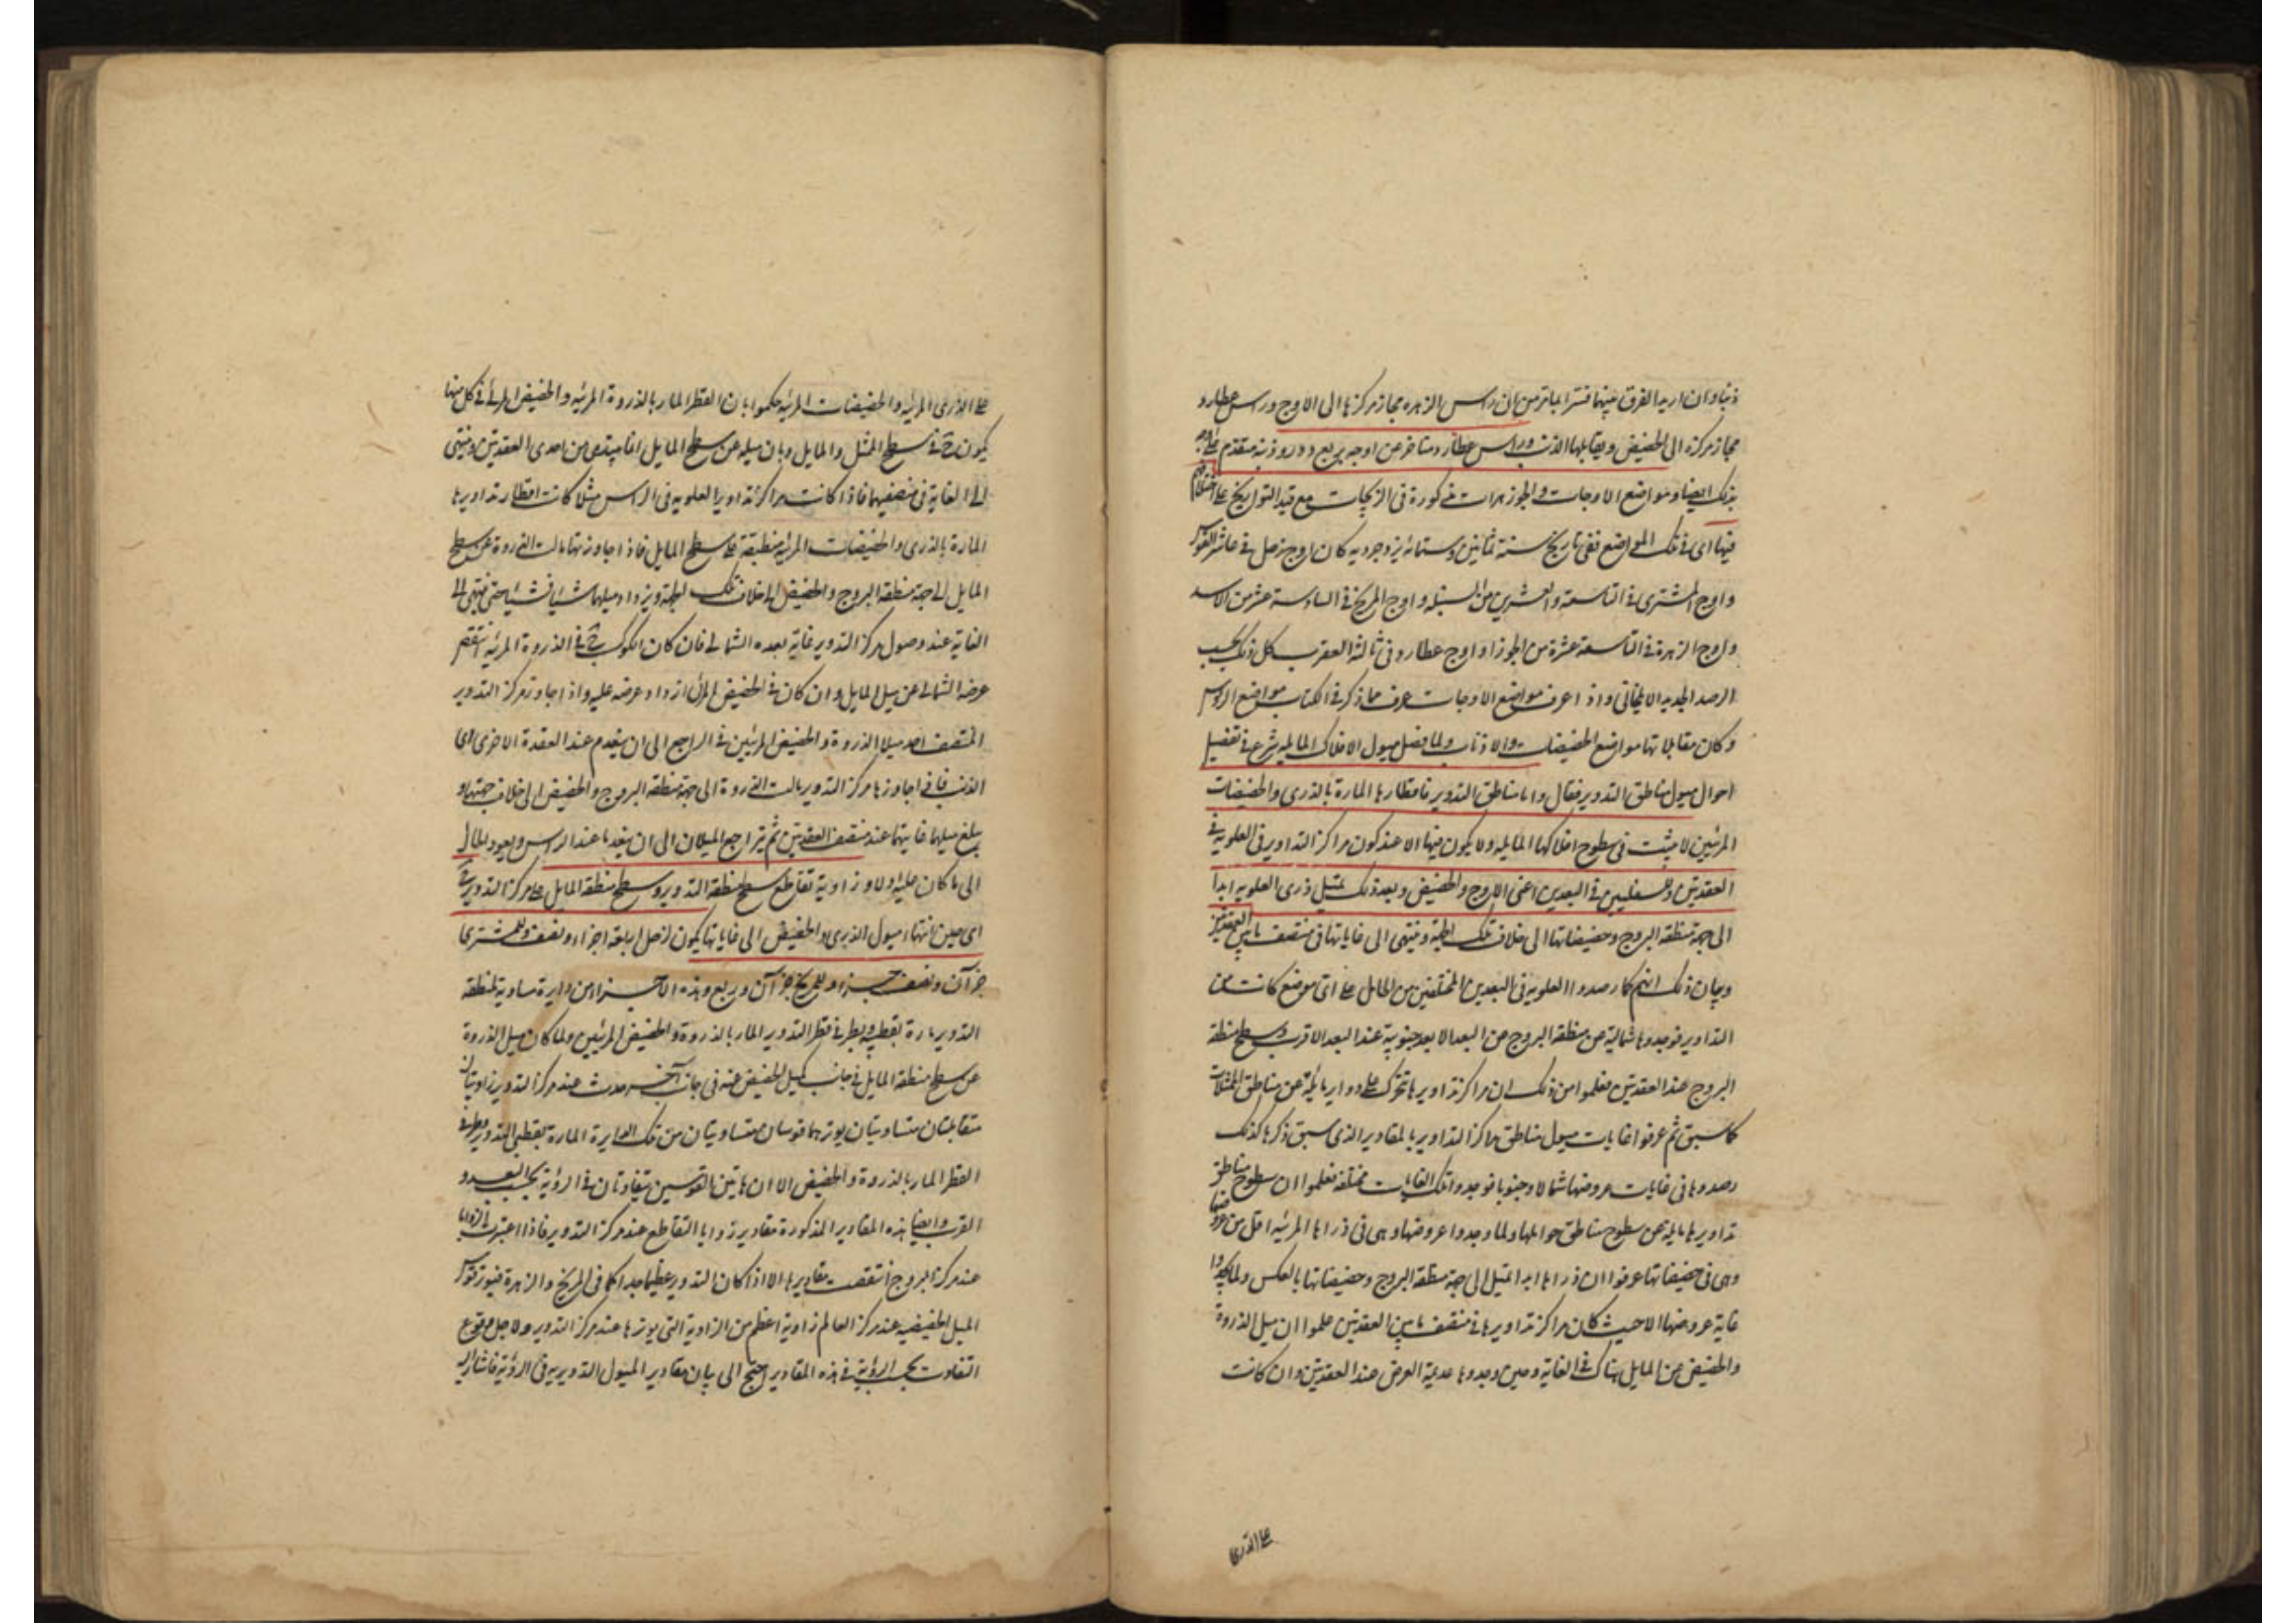 ذنبا وان اريد الفرق بينهما فسر المأثر من ان راس الزهره مجاز مركزها الى الاوج وراس عطارد
مجاز مركزه الى الحضيض ويقابلها الذنب وراس عطارد متاخر عن اوجه بربع دور وذنبه متقدم على اوجه
بذلك ايضا ومواضع الاوجات والجوزهرات مذكورة فى الزيجات مع قيد التواريخ على
فيها اى فى تلك المواضع ففى تاريخ سنة ثمانين وستمائة يزدجرديه كان اوج زحل فى عاشر القوس
واوج المشترى فى التاسعة والعشرين من السنبله واوج المريخ فى السادسة عشر من الاسد
واوج الزهرة فى التاسعة عشرة من الجوزا واوج عطارد فى ثالثة العقرب كل ذلك بحسب
الرصد الجديد الايلخانى واذا عرف مواضع الاوجات عرف مما ذكر فى الكتاب مواضع الروس
وكان مقابلاتها مواضع الحضيضات والاذناب ولما فصل ميول الافلاك المايله شرع فى تفصيل
احوال ميول مناطق التدوير فقال واما مناطق التدوير فاقطارها المارة بالذرى والحضيضات
المرئيين لا يثبت فى سطوح افلاكها المايله ولا يكون فيها الا عند كون مراكز التداوير فى العلويه فى
العقدتين وللسفليين فى البعدين اعنى الاوج والحضيض وبعد ذلك يميل ذرى العلويه ابدا
الى جهة منطقة البروج وحضيضاتها الى خلاف تلك الجهة وينتهى الى غاياتها فى منتصف ما بين العقدتين
وبيان ذلك انهم لما رصدوا العلويه فى البعدين المختلفين من الحامل على اى موضع كانت من
التداوير فوجدوها شمالية عن منطقة البروج عن البعد الابعد جنوبية عند البعد الاقرب وسطح منطقة
البروج عند العقدتين فعلموا من ذلك ان مراكز تداويرها تتحرك على دواير مائلة عن مناطق الممثلات
كما سبق ثم عرفوا غايات ميول مناطق مراكز التداوير بالمقادير الذى سبق ذكرها كذلك
رصدوها فى غايات عروضها شمالا وجنوبا فوجدوا تلك الغايات مختلفة فعلموا ان سطوح مناطق
تداويرها مايلة عن سطوح مناطق حواملها ولما وجدوا عروضها وهى فى ذراها المرئيه اقل من عروضها
وهى فى حضيضاتها عرفوا ان ذراها ابدا تميل الى جهة منطقة البروج وحضيضاتها بالعكس ولما لم يجدوا
غاية عروضها الا حيث كان مراكز تداويرها فى منتصف ما بين العقدتين علموا ان ميل الذروة
والحضيض عن المايل هناك فى الغاية وحين وجدوها عديمة العرض عند العقدتين وان كانت
على الذرى
على الذرى المرئيه والحضيضات المرئيه حكموا بان القطر المار بالذروة المرئيه والحضيض المرئى فى كل منها
يكون ح فى سطح الممثل والمايل وبان ميله عن سطح المايل انما يبتدى من احدى العقدتين وينتهى
الى الغاية فى منتصفيهما فاذا كانت مراكز تداوير العلويه فى الراس مثلا كانت اقطار تداويرها
المارة بالذرى والحضيضات المرئيه منطبقة على سطح المايل فاذا جاوزتها مالت الذروة عن سطح
المايل الى جهة منطقة البروج والحضيض الى خلاف تلك الجهة ويزداد ميلهما شيئا فشيئا حتى ينتهى الى
الغاية عند وصول مركز التدوير غاية بعده الشمالى فان كان الكوكب ح فى الذروة المرئيه انتقص
عرضه الشمالى عن ميل المايل وان كان فى الحضيض المرئى ازداد عرضه عليه واذا جاوز مركز التدوير
المنتصف اخذ ميلا الذروة والحضيض المرئيين فى التراجع الى ان ينعدم عند العقدة الاخرى اى
الذنب فاذا جاوزها مركز التدوير مالت الذروة الى جهة منطقة البروج والحضيض الى خلاف جهتها و
يبلغ ميلهما غايتهما عند منتصف العقدتين ثم يتراجع الميلان الى ان ينعدما عند الراس ويعود الحال
الى ما كان عليه اولا وزاوية تقاطع سطح منطقة التدوير وسطح منطقة المايل على مركز التدوير فى
اى حين انتهاء ميول الذرى والحضيض الى غاياتها يكون لزحل اربعة اجزاء ونصف وللمشترى
جزآن ونصف جزء وللمريخ جزآن وربع وهذه الاجزاء من دايرة مساوية لمنطقة
التدوير مارة بقطبيه وبطرفى قطر التدوير المار بالذروة والحضيض المرئيين ولما كان ميل الذروة
عن سطح منطقة المايل فى جانب وميل الحضيض عنه فى جانب آخر حدث عند مركز التدوير زاويتان
متقابلتان متساويتان يوترهما قوسان متساويتان من تلك الدايرة المارة بقطبى التدوير وطرفى
القطر المار بالذروة والحضيض الا ان هاتين القوسين يتفاوتان فى الرؤية بحسب البعد و
القرب وايضا هذه المقادير المذكورة مقادير زوايا التقاطع عند مركز التدوير فاذا اعتبرت الزوايا
عند مركز البروج انتقصت مقاديرها الا اذا كان التدوير عظيما جدا كما فى المريخ والزهرة فيوتر قوس
الميل الحضيضيه عند مركز العالم زاوية اعظم من الزاوية التى يوترها عند مركز التدوير ولاجل وقوع
التفاوت بحسب الرؤية فى هذه المقادير احتج الى بيان مقادير الميول التدويريه فى الرؤية فاشار اليه